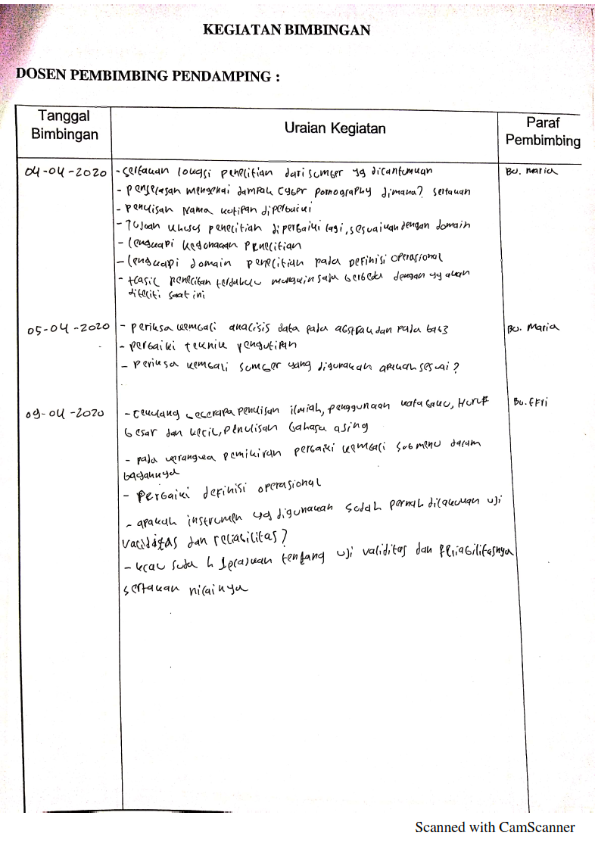 KEGIATAN BIMBINGAN
DOSEN PEMBIMBING PENDAMPING :
Tanggal Bimbingan
Uraian Kegiatan
Paraf Pembimbing
04-04-2020
- Sertakan lokasi penelitian dari sumber yg dicantumkan
Bu. Maria
- penjelasan mengenai dampak cyber pornography dimana? sertakan
- penulisan nama kutipan diperbaiki
- Tujuan khusus penelitian diperbaiki lagi, sesuaikan dengan domain
- lengkapi kegunaan penelitian
- lengkapi domain penelitian pada definisi operasional
- Hasil penelitian terdahulu mungkin saja berbeda dengan yg akan
diteliti saat ini
05-04-2020
- periksa kembali analisis data pada abstrak dan pada bab 3
Bu. Maria
- perbaiki teknik pengutipan
- periksa kembali sumber yang digunakan apakah sesuai?
09-04-2020
- tentang beberapa penulisan ilmiah, penggunaan kata baku, Huruf
Bu. Efri
besar dan kecil, penulisan bahasa asing
- pada kerangka pemikiran perbaiki kembali submenu dalam
bagannya
- Perbaiki definisi operasional
- apakah instrumen yg digunakan sudah pernah dilakukan uji
validitas dan reliabilitas?
- kalau sudah jelaskan tentang uji validitas dan reliabilitasnya
sertakan nilainya
Scanned with CamScanner